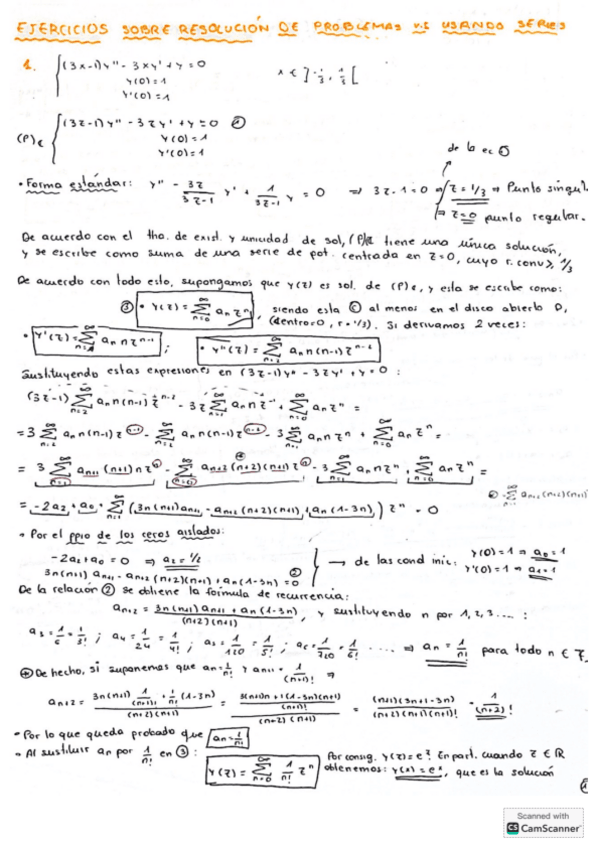 EJERCICIOS SOBRE RESOLUCIÓN DE PROBLEMAS V.I USANDO SERIES
1. { (3x-1)y'' - 3xy' + y = 0   x ∈ ]-1/3, 1/3[
y(0) = 1
y'(0) = 1
(P)c { (3z-1)y'' - 3zy' + y = 0 ①
y(0) = 1
y'(0) = 1
de la ec ①
• Forma estándar: y'' - 3z/(3z-1) y' + 1/(3z-1) y = 0 ⇒ 3z-1=0 ⇒ z = 1/3 ⇒ Punto singul.
⇒ z=0 punto regular.
De acuerdo con el tho. de exist. y unicidad de sol, (P)c tiene una única solución,
y se escribe como suma de una serie de pot. centrada en z=0, cuyo r.conv ≥ 1/3
De acuerdo con todo esto, supongamos que y(z) es sol. de (P)c, y esta se escribe como:
③ • y(z) = ∑_{n=0}^∞ a_n z^n, siendo esta © al menos en el disco abierto D,
(centro=0, r=1/3). Si derivamos 2 veces:
• y'(z) = ∑_{n=1}^∞ a_n n z^{n-1} ; • y''(z) = ∑_{n=2}^∞ a_n n(n-1) z^{n-2}
Sustituyendo estas expresiones en (3z-1)y'' - 3zy' + y = 0 :
(3z-1) ∑_{n=2}^∞ a_n n(n-1) z^{n-2} - 3z ∑_{n=1}^∞ a_n n z^{n-1} + ∑_{n=0}^∞ a_n z^n =
= 3 ∑_{n=2}^∞ a_n n(n-1) z^{n-1} - ∑_{n=2}^∞ a_n n(n-1) z^{n-2} - 3 ∑_{n=1}^∞ a_n n z^n + ∑_{n=0}^∞ a_n z^n =
= 3 ∑_{n=1}^∞ a_{n+1} (n+1) n z^n - ∑_{n=0}^∞ a_{n+2} (n+2)(n+1) z^n - 3 ∑_{n=1}^∞ a_n n z^n + ∑_{n=0}^∞ a_n z^n =
= -2a_2 + a_0 + ∑_{n=1}^∞ (3n(n+1)a_{n+1} - a_{n+2}(n+2)(n+1) + a_n(1-3n)) z^n = 0
• Por el ppio de los ceros aislados:
-2a_2 + a_0 = 0 ⇒ a_2 = 1/2
3n(n+1) a_{n+1} - a_{n+2}(n+2)(n+1) + a_n(1-3n) = 0 ②
→ de las cond inic: y(0) = 1 ⇒ a_0 = 1
y'(0) = 1 ⇒ a_1 = 1
De la relación ② se obtiene la fórmula de recurrencia:
a_{n+2} = (3n(n+1)a_{n+1} + a_n(1-3n)) / ((n+2)(n+1)), y sustituyendo n por 1, 2, 3.... :
a_3 = 1/6 = 1/3! ; a_4 = 1/24 = 1/4! ; a_5 = 1/120 = 1/5! ; a_6 = 1/720 = 1/6! .... ⇒ a_n = 1/n! para todo n ∈
⊛ De hecho, si suponemos que a_n = 1/n! y a_{n+1} = 1/(n+1)! ⇒
a_{n+2} = (3n(n+1) 1/(n+1)! + 1/n! (1-3n)) / ((n+2)(n+1)) = ((3(n+1)n + 1(1-3n)(n+1)) / (n+1)!) / ((n+2)(n+1)) = (n+1)(3n+1-3n) / ((n+2)(n+1)(n+1)!) = 1/(n+2)!
• Por lo que queda probado que a_n = 1/n!
• Al sustituir a_n por 1/n! en ③ : y(z) = ∑_{n=0}^∞ 1/n! z^n
Por consig. y(z) = e^z. En part. cuando z ∈ ℝ
obtenemos: y(x) = e^x, que es la solución
Scanned with
CS CamScanner